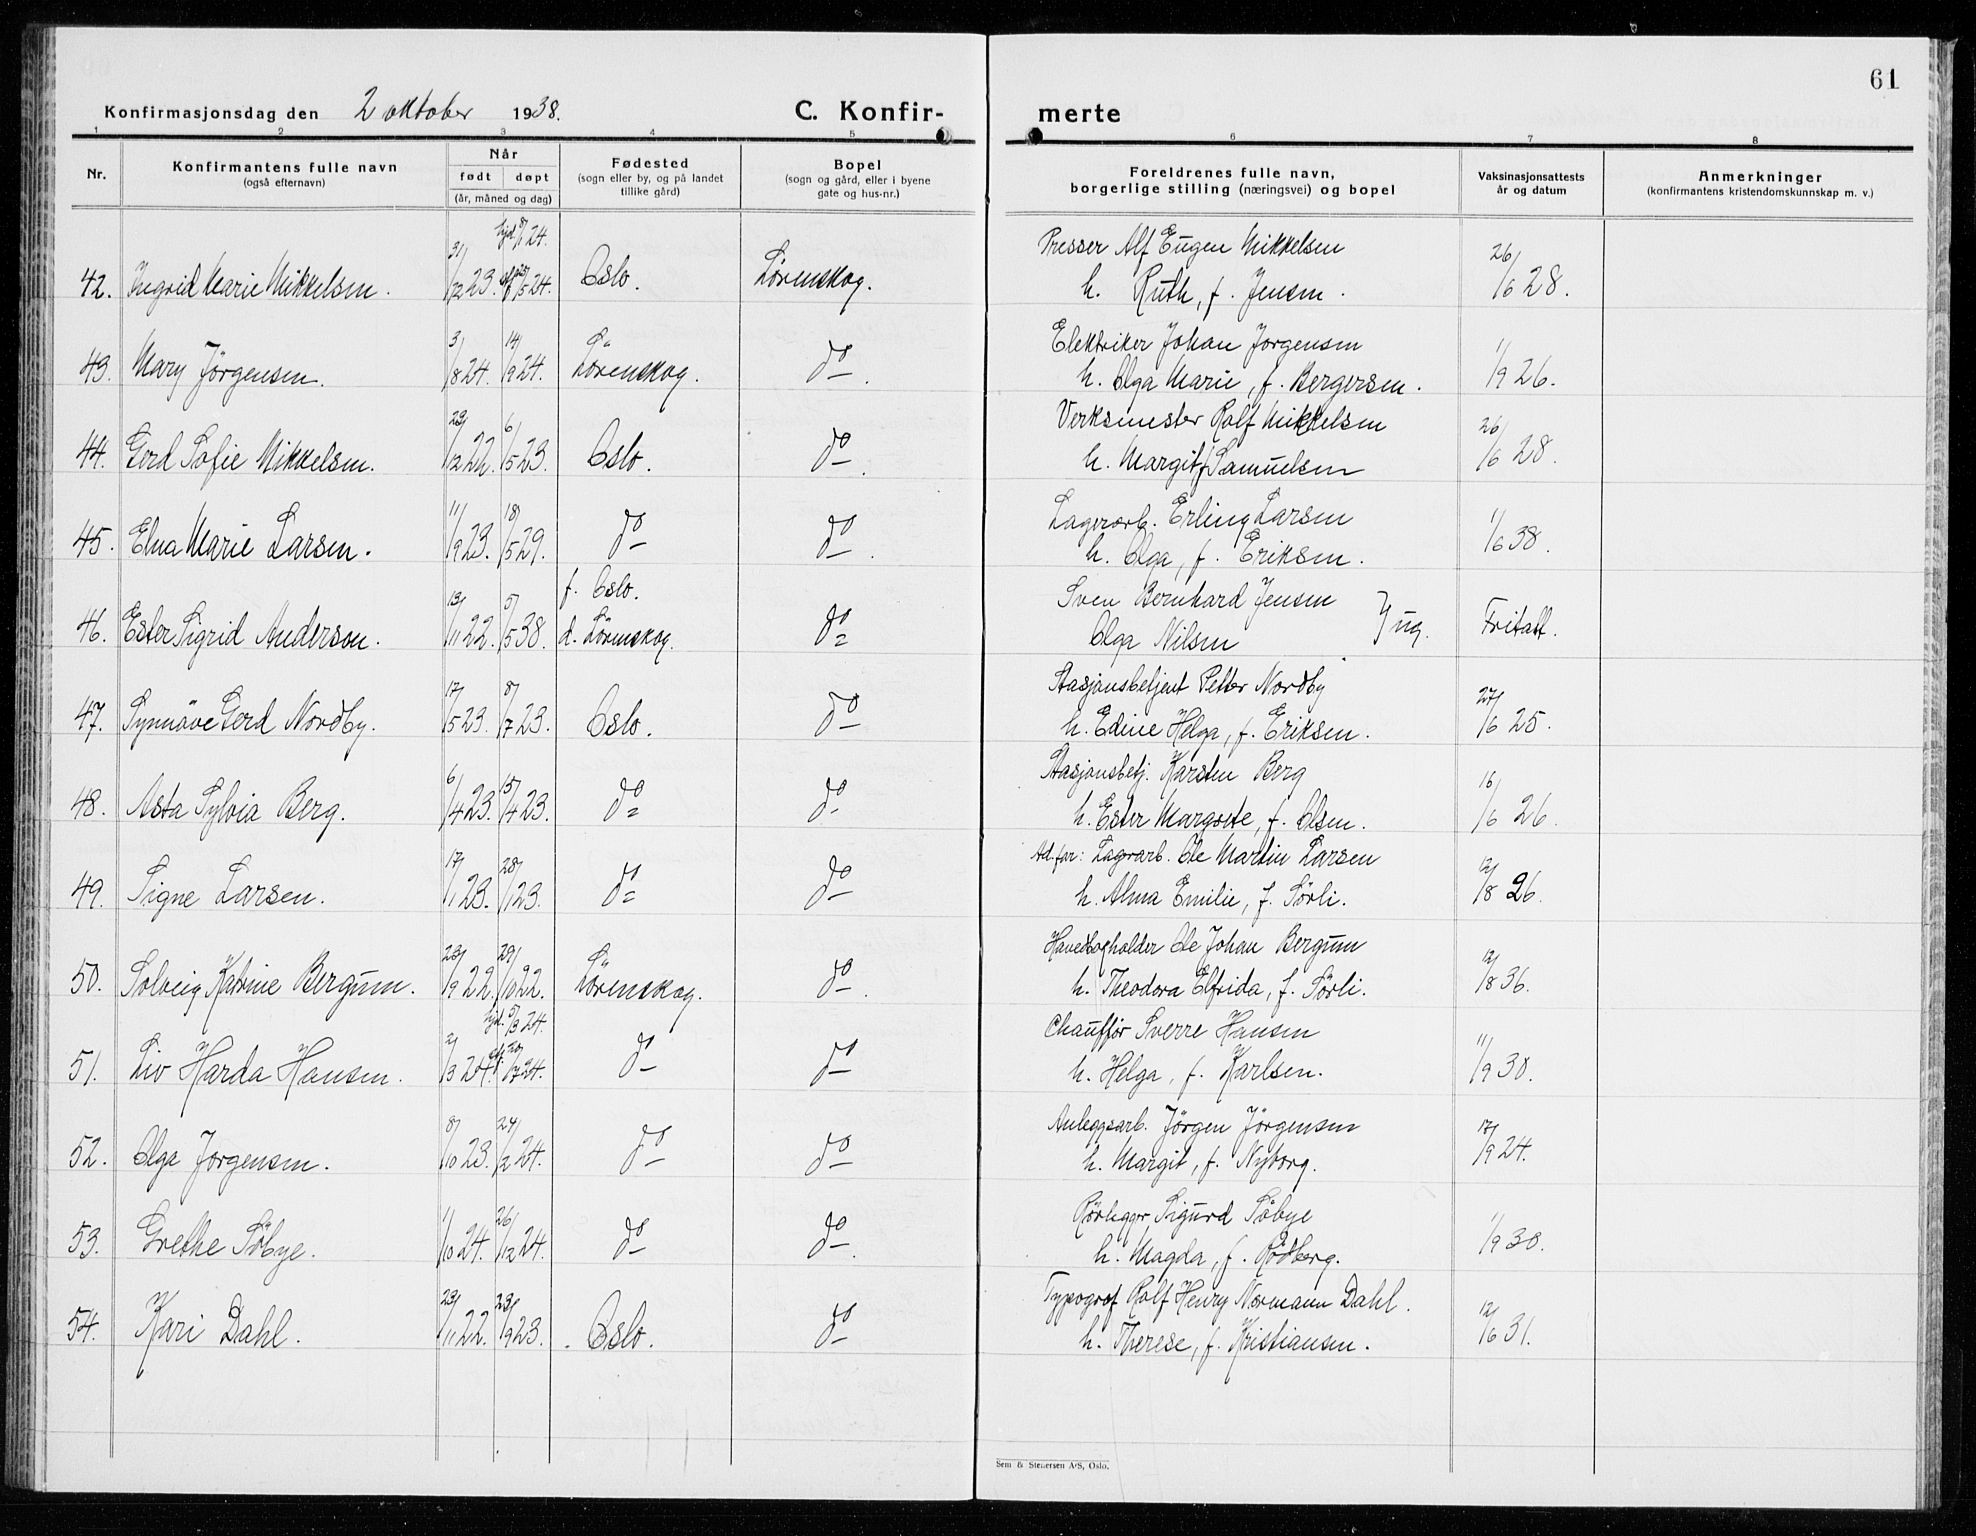 61
Konfirmasjonsdag den 2 oktober 1938. C. Konfir- merte
1 2 3 4 5 6 7 8
Nr. Konfirmantens fulle navn (også efternavn) Når født døpt (år, måned og dag) Fødested (sogn eller by, og på landet tillike gård) Bopel (sogn og gård, eller i byene gate og hus-nr.) Foreldrenes fulle navn, borgerlige stilling (næringsvei) og bopel Vaksinasjonsattests år og datum Anmerkninger (konfirmantens kristendomskunnskap m. v.)
hjd. 8/1 24. Presser Alf Eugen Mikkelsen
42. Ingrid Marie Mikkelsen. 31/12 23. /5 24. Oslo. Lørenskog. h. Ruth, f. Jensen. 26/6 28.
Elektriker Johan Jørgensen
43. Mary Jørgensen. 3/8 24. 14/9 24. Lörenskog. do h. Olga Marie, f. Bergersen. 1/9 26.
Verksmester Rolf Mikkelsen
44. Gerd Sofie Mikkelsen. 29/12 22. 6/5 23. Oslo. do h. Margit f. Samuelsen 26/6 28.
Lagerarb. Erling Larsen
45. Elna Marie Larsen. 11/9 23. 18/5 29. do do h. Olga, f. Eriksen. 1/6 38.
f. Oslo. Sven Bernhard Jensen
46. Ester Sigrid Anderson. 13/11 22. 5/5 38. d. Lörenskog. do Olga Nilsen } ug. Fritatt.
Stasjonsbetjent Petter Nordby
47. Synnöve Gerd Nordby. 17/5 23. 8/7 23. Oslo. do h. Edine Helga, f. Eriksen. 27/6 25.
Stasjonsbetj. Karsten Berg
48. Asta Sylvia Berg. 6/4 23. 15/4 23. do do h. Ester Margrete, f. Olsen. 16/6 26.
Ad. far: Lagerarb. Ole Martin Larsen
49. Signe Larsen. 17/1 23. 28/1 23. do do h. Alma Emilie, f. Sörli. 12/8 26.
Hovedbogholder Ole Johan Bergum
50. Solveig Katrine Bergum. 23/9 22. 29/10 22. Lörenskog. do h. Theodora Elfrida, f. Sörli. 12/8 36.
hjd. 5/3 24. Chauffør Sverre Hansen
51. Liv Harda Hansen. 2/3 24. 20/7 24. do do h. Helga, f. Karlsen. 11/9 30.
Anleggsarb. Jörgen Jörgensen
52. Olga Jørgensen. 8/10 23. 24/2 24. do do h. Margit, f. Nyborg. 17/9 24.
Rörlegger Sigurd Söbye
53. Grethe Söbye. 1/10 24. 26/12 24. do do h. Magda, f. Rödberg. 1/9 30.
Typograf Rolf Henry Normann Dahl.
54. Kari Dahl. 23/11 22. 23/9 23. Oslo. do h. Therese, f. Kristiansen. 12/6 31.
Sem & Stenersen A/S, Oslo.